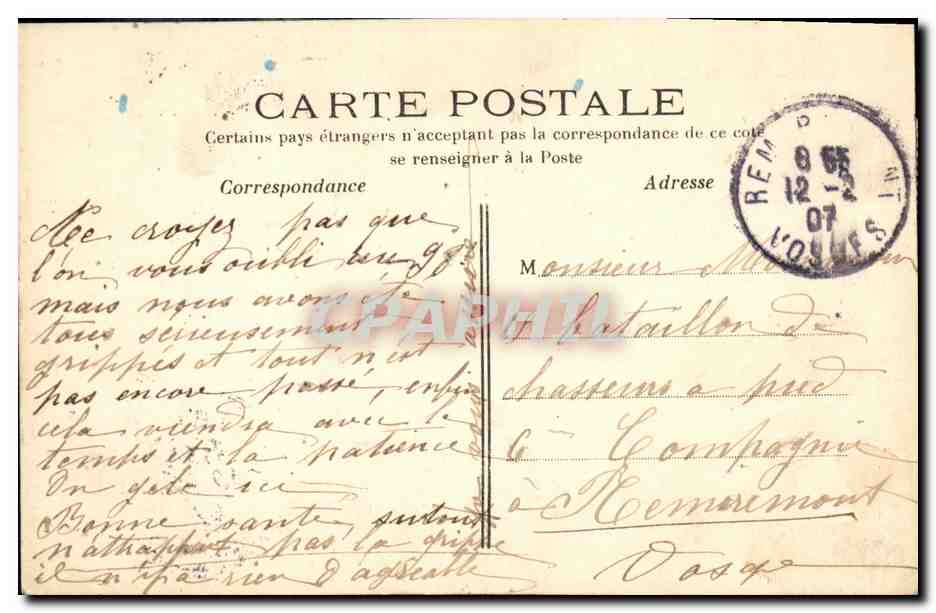 CARTE POSTALE
Certains pays étrangers n'acceptant pas la correspondance de ce coté
se renseigner à la Poste
Correspondance
Adresse
Ne croyez pas que
l'on vous oubli
mais nous avons été
tous serieusement
grippés et tout n'est
pas encore passé, enfin
cela viendra avec le
temps et la patience
On gele ici
Bonne santé, surtout
n'attrappent pas la grippe
il n'y a rien d'agréable
Monsieur
bataillon de
chasseurs a pied
6e Compagnie
à Remiremont
Vosge
REM NT
12 - 2
07
VOSGES
CPAPHIL